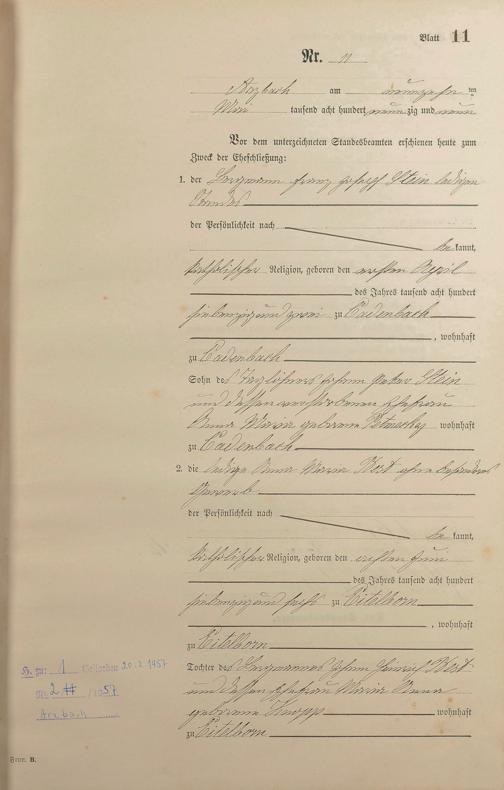 Blatt 11
Nr. 11
Arzbach am neunzehn ten
Mai tausend acht hundert neun zig und neun
Vor dem unterzeichneten Standesbeamten erschienen heute zum
Zweck der Eheschließung:
1. der Bergmann Franz Joseph Stein ledigen
Standes
der Persönlichkeit nach
be kannt,
katholischer Religion, geboren den ersten April
des Jahres tausend acht hundert
siebenzig und zwei zu Cadenbach
, wohnhaft
zu Cadenbach
Sohn des Taglöhners Johann Peter Stein
und dessen verstorbenen Ehefrau
Anna Maria geborene wohnhaft
zu Cadenbach
2. die ledige Anna Maria ohne besonderes
Gewerb
der Persönlichkeit nach
be kannt,
katholischer Religion, geboren den Juni
des Jahres tausend acht hundert
siebenzig und sechs zu Eitelborn
, wohnhaft
zu Eitelborn
Tochter des Bergmannes Johann Heinrich
und dessen Ehefrau Maria Anna
geborene Knopp wohnhaft
zu Eitelborn
1 Gestorben 20.2.1957
Nr. 2 /1957
Arzbach
Form. B.